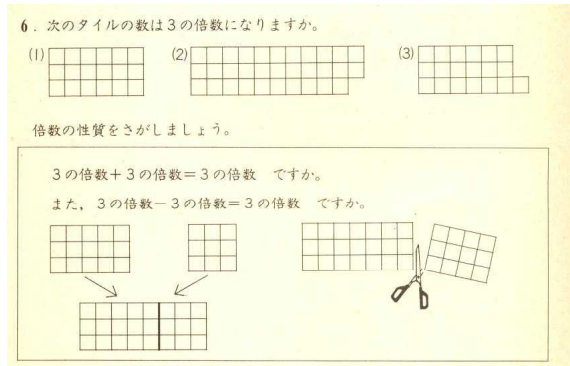 6．次のタイルの数は3の倍数になりますか。
(1) (2) (3)
倍数の性質をさがしましょう。
3の倍数＋3の倍数＝3の倍数　ですか。
また，3の倍数－3の倍数＝3の倍数　ですか。